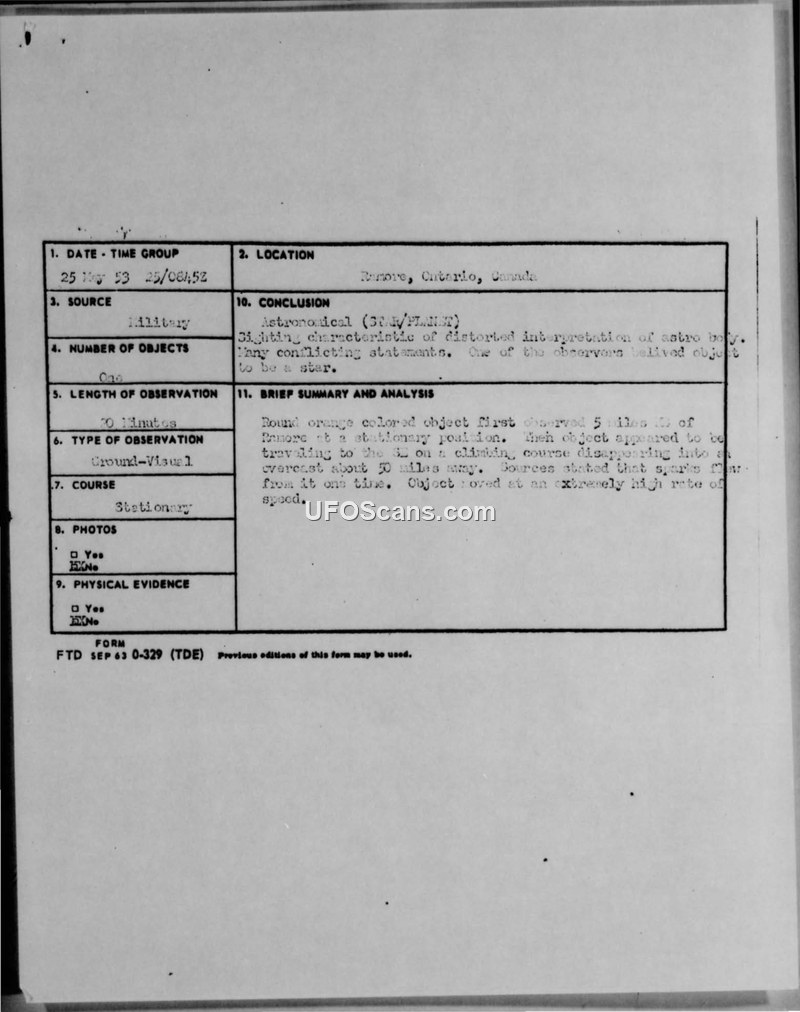 1. DATE - TIME GROUP
25 May 53 25/0845Z
2. LOCATION
Ramore, Ontario, Canada
3. SOURCE
Military
10. CONCLUSION
Astronomical (STAR/PLANET)
Sighting characteristic of distorted interpretation of astro body.
Many conflicting statements. One of the observers belived object
to be a star.
4. NUMBER OF OBJECTS
One
5. LENGTH OF OBSERVATION
Minutes
11. BRIEF SUMMARY AND ANALYSIS
Round orange colored object first observed 5 miles of
Ramore at a stationary position. object appeared to be
traveling to the on a climbing course disappearing into an
overcast about 50 miles away. Sources stated that sparks flew
from it one time. Object moved at an extremely high rate of
speed.
6. TYPE OF OBSERVATION
Ground-Visual
7. COURSE
Stationary
8. PHOTOS
□ Yes
No
9. PHYSICAL EVIDENCE
□ Yes
No
FORM
FTD SEP 63 0-329 (TDE) Previous editions of this form may be used.
UFOScans.com